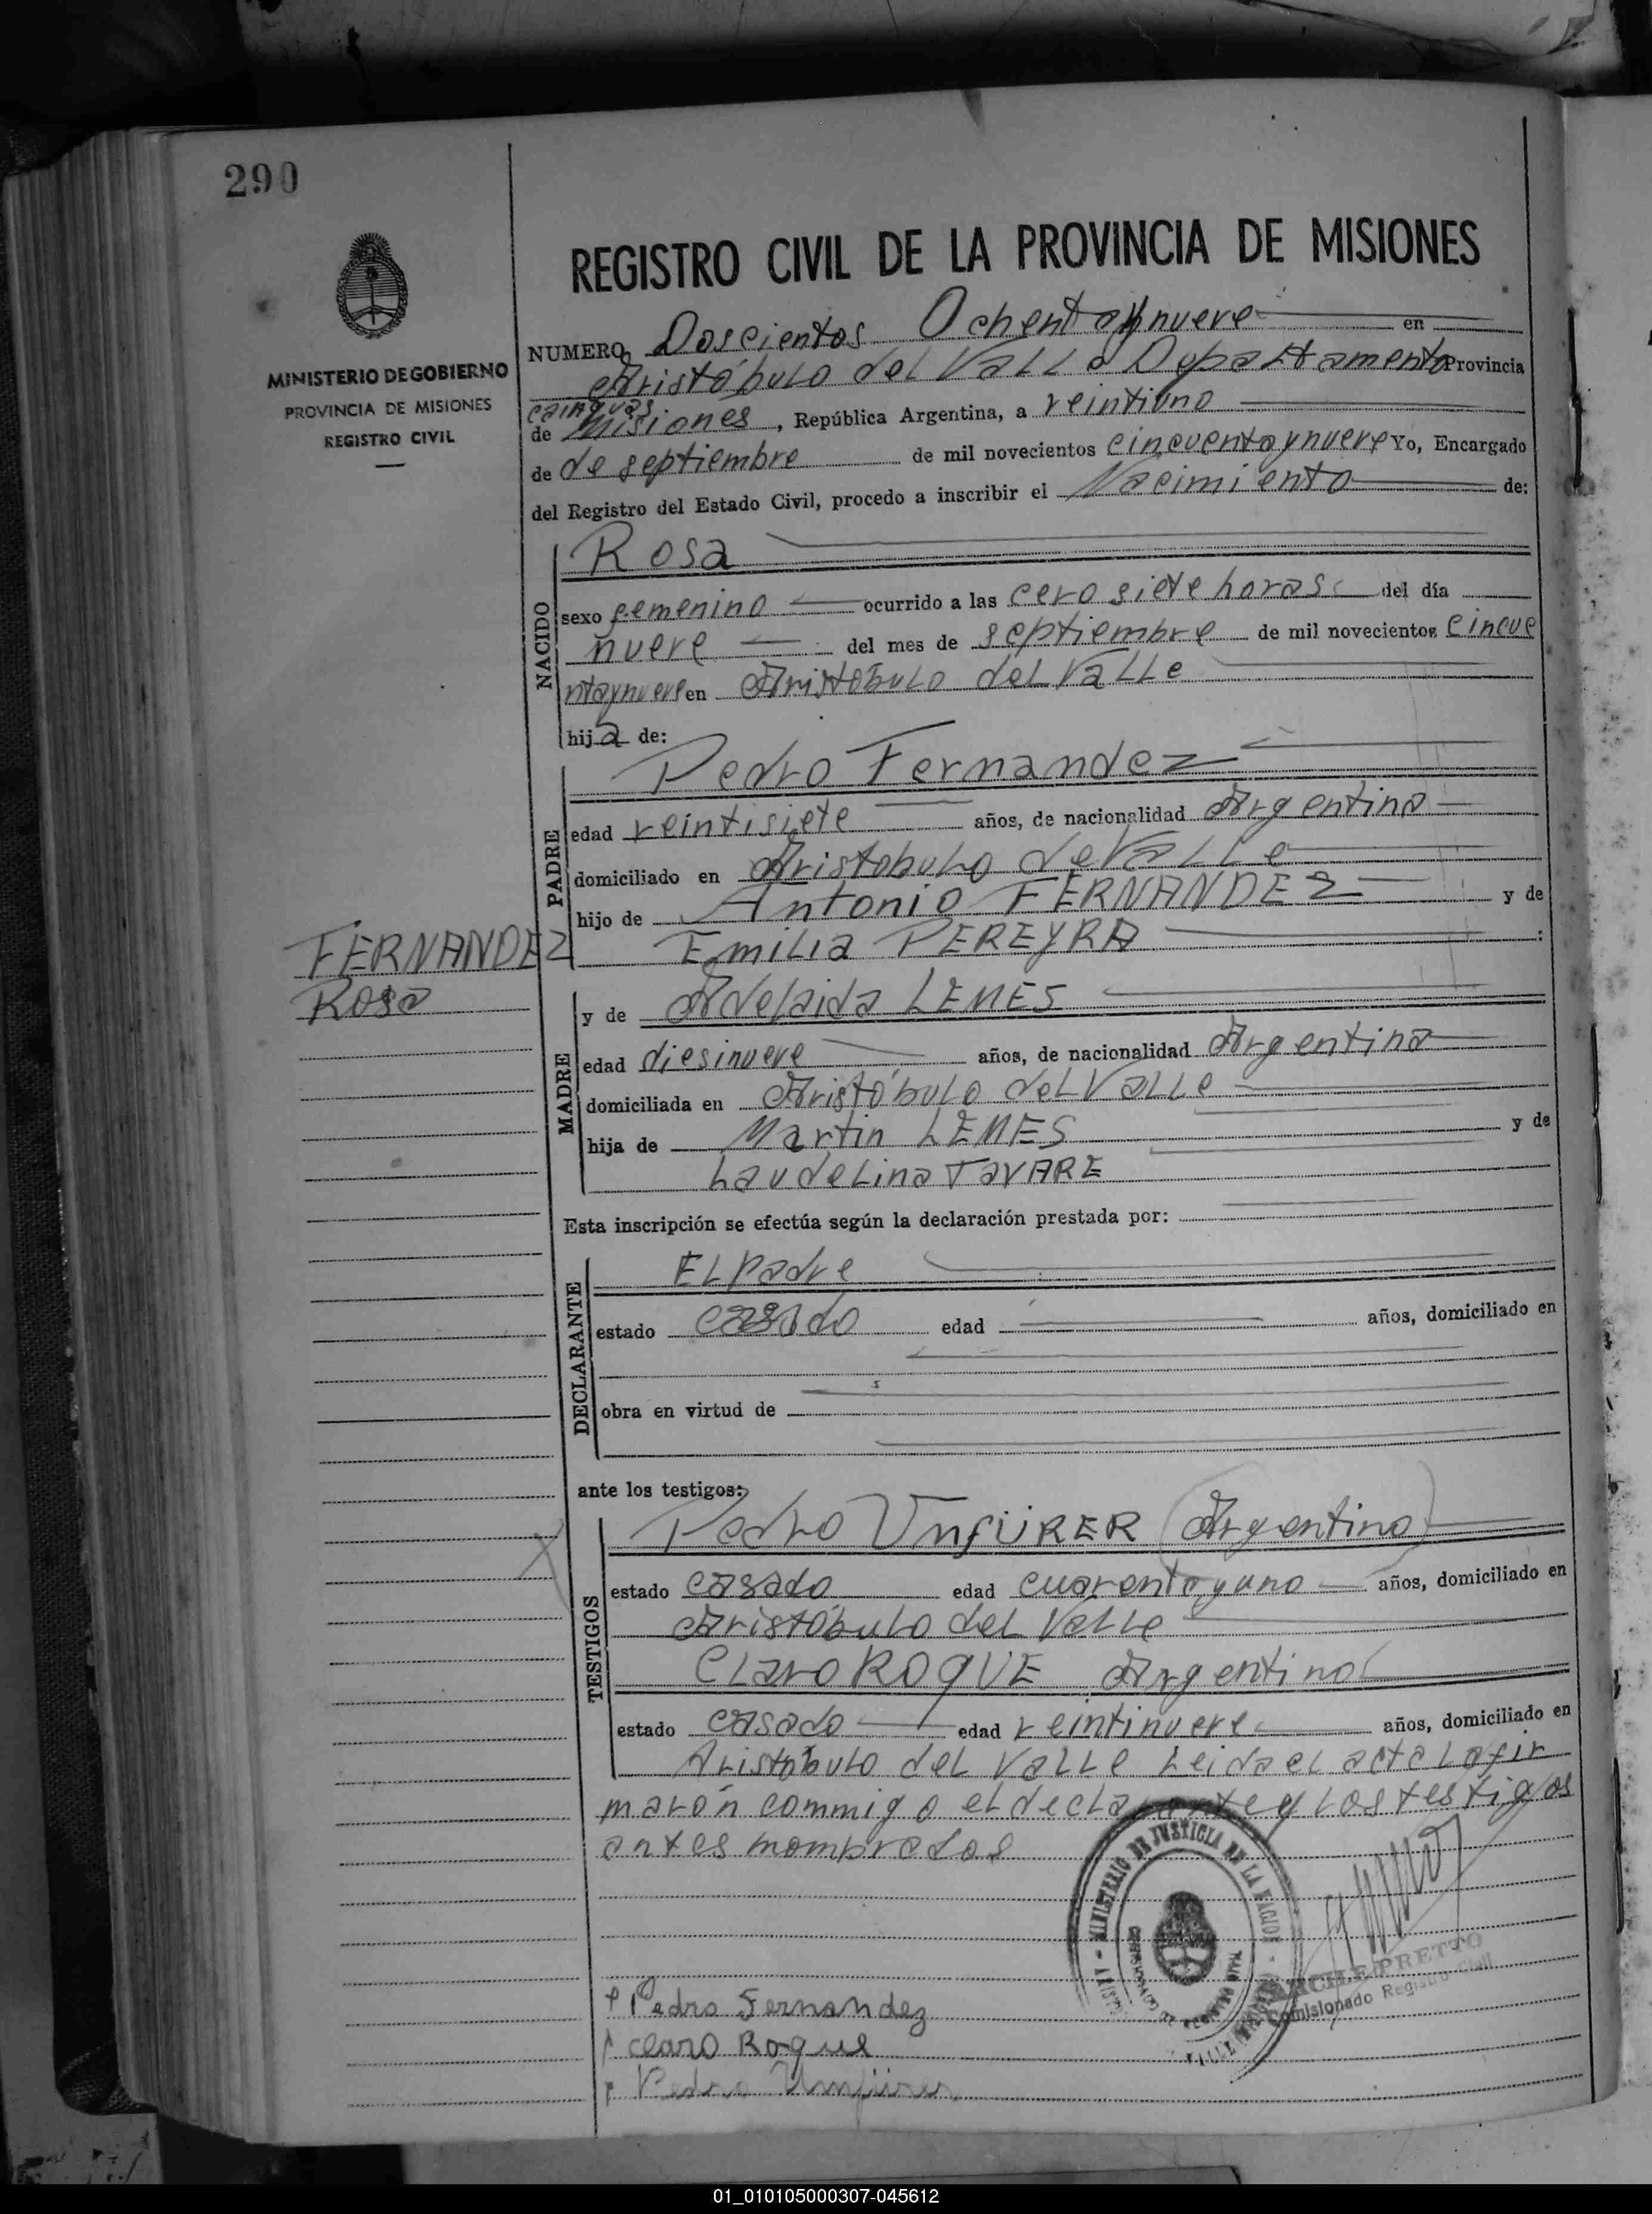 290
MINISTERIO DE GOBIERNO
PROVINCIA DE MISIONES
REGISTRO CIVIL
REGISTRO CIVIL DE LA PROVINCIA DE MISIONES
NUMERO Doscientos Ochentaynueve en
Aristóbulo del Valle Departamento Provincia
Cainguas
de Misiones, República Argentina, a veintiuno
de de septiembre de mil novecientos cincuentaynueve Yo, Encargado
del Registro del Estado Civil, procedo a inscribir el Nacimiento de:
NACIDO
Rosa
sexo femenino ocurrido a las cero siete horas del día
nueve del mes de septiembre de mil novecientos cincue
ntaynueve en Aristóbulo del Valle
hija de:
PADRE
Pedro Fernandez
edad veintisiete años, de nacionalidad Argentina
domiciliado en Aristobulo del Valle
hijo de Antonio FERNANDEZ y de
Emilia PEREYRA
FERNANDEZ
Rosa
MADRE
y de Adelaida LEMES
edad diesinueve años, de nacionalidad Argentina
domiciliada en Aristóbulo del Valle
hija de Martin LEMES y de
Laudelina TAVARE
Esta inscripción se efectúa según la declaración prestada por:
DECLARANTE
El Padre
estado casado edad años, domiciliado en
obra en virtud de
ante los testigos:
TESTIGOS
Pedro UnfÜRER (Argentino)
estado casado edad cuarentayuno años, domiciliado en
Aristóbulo del Valle
Claro ROqUE Argentino
estado casado edad veintinueve años, domiciliado en
Aristóbulo del Valle Leida el acta La fir
marón commigo el declarante y los testigos
antes mombrados
MINISTERIO DE JUSTICIA DE LA NACION
PRETTO
Comisionado Registro Civil
Pedro Fernandez
claro Roque
Pedro Unfürer
01_010105000307-045612